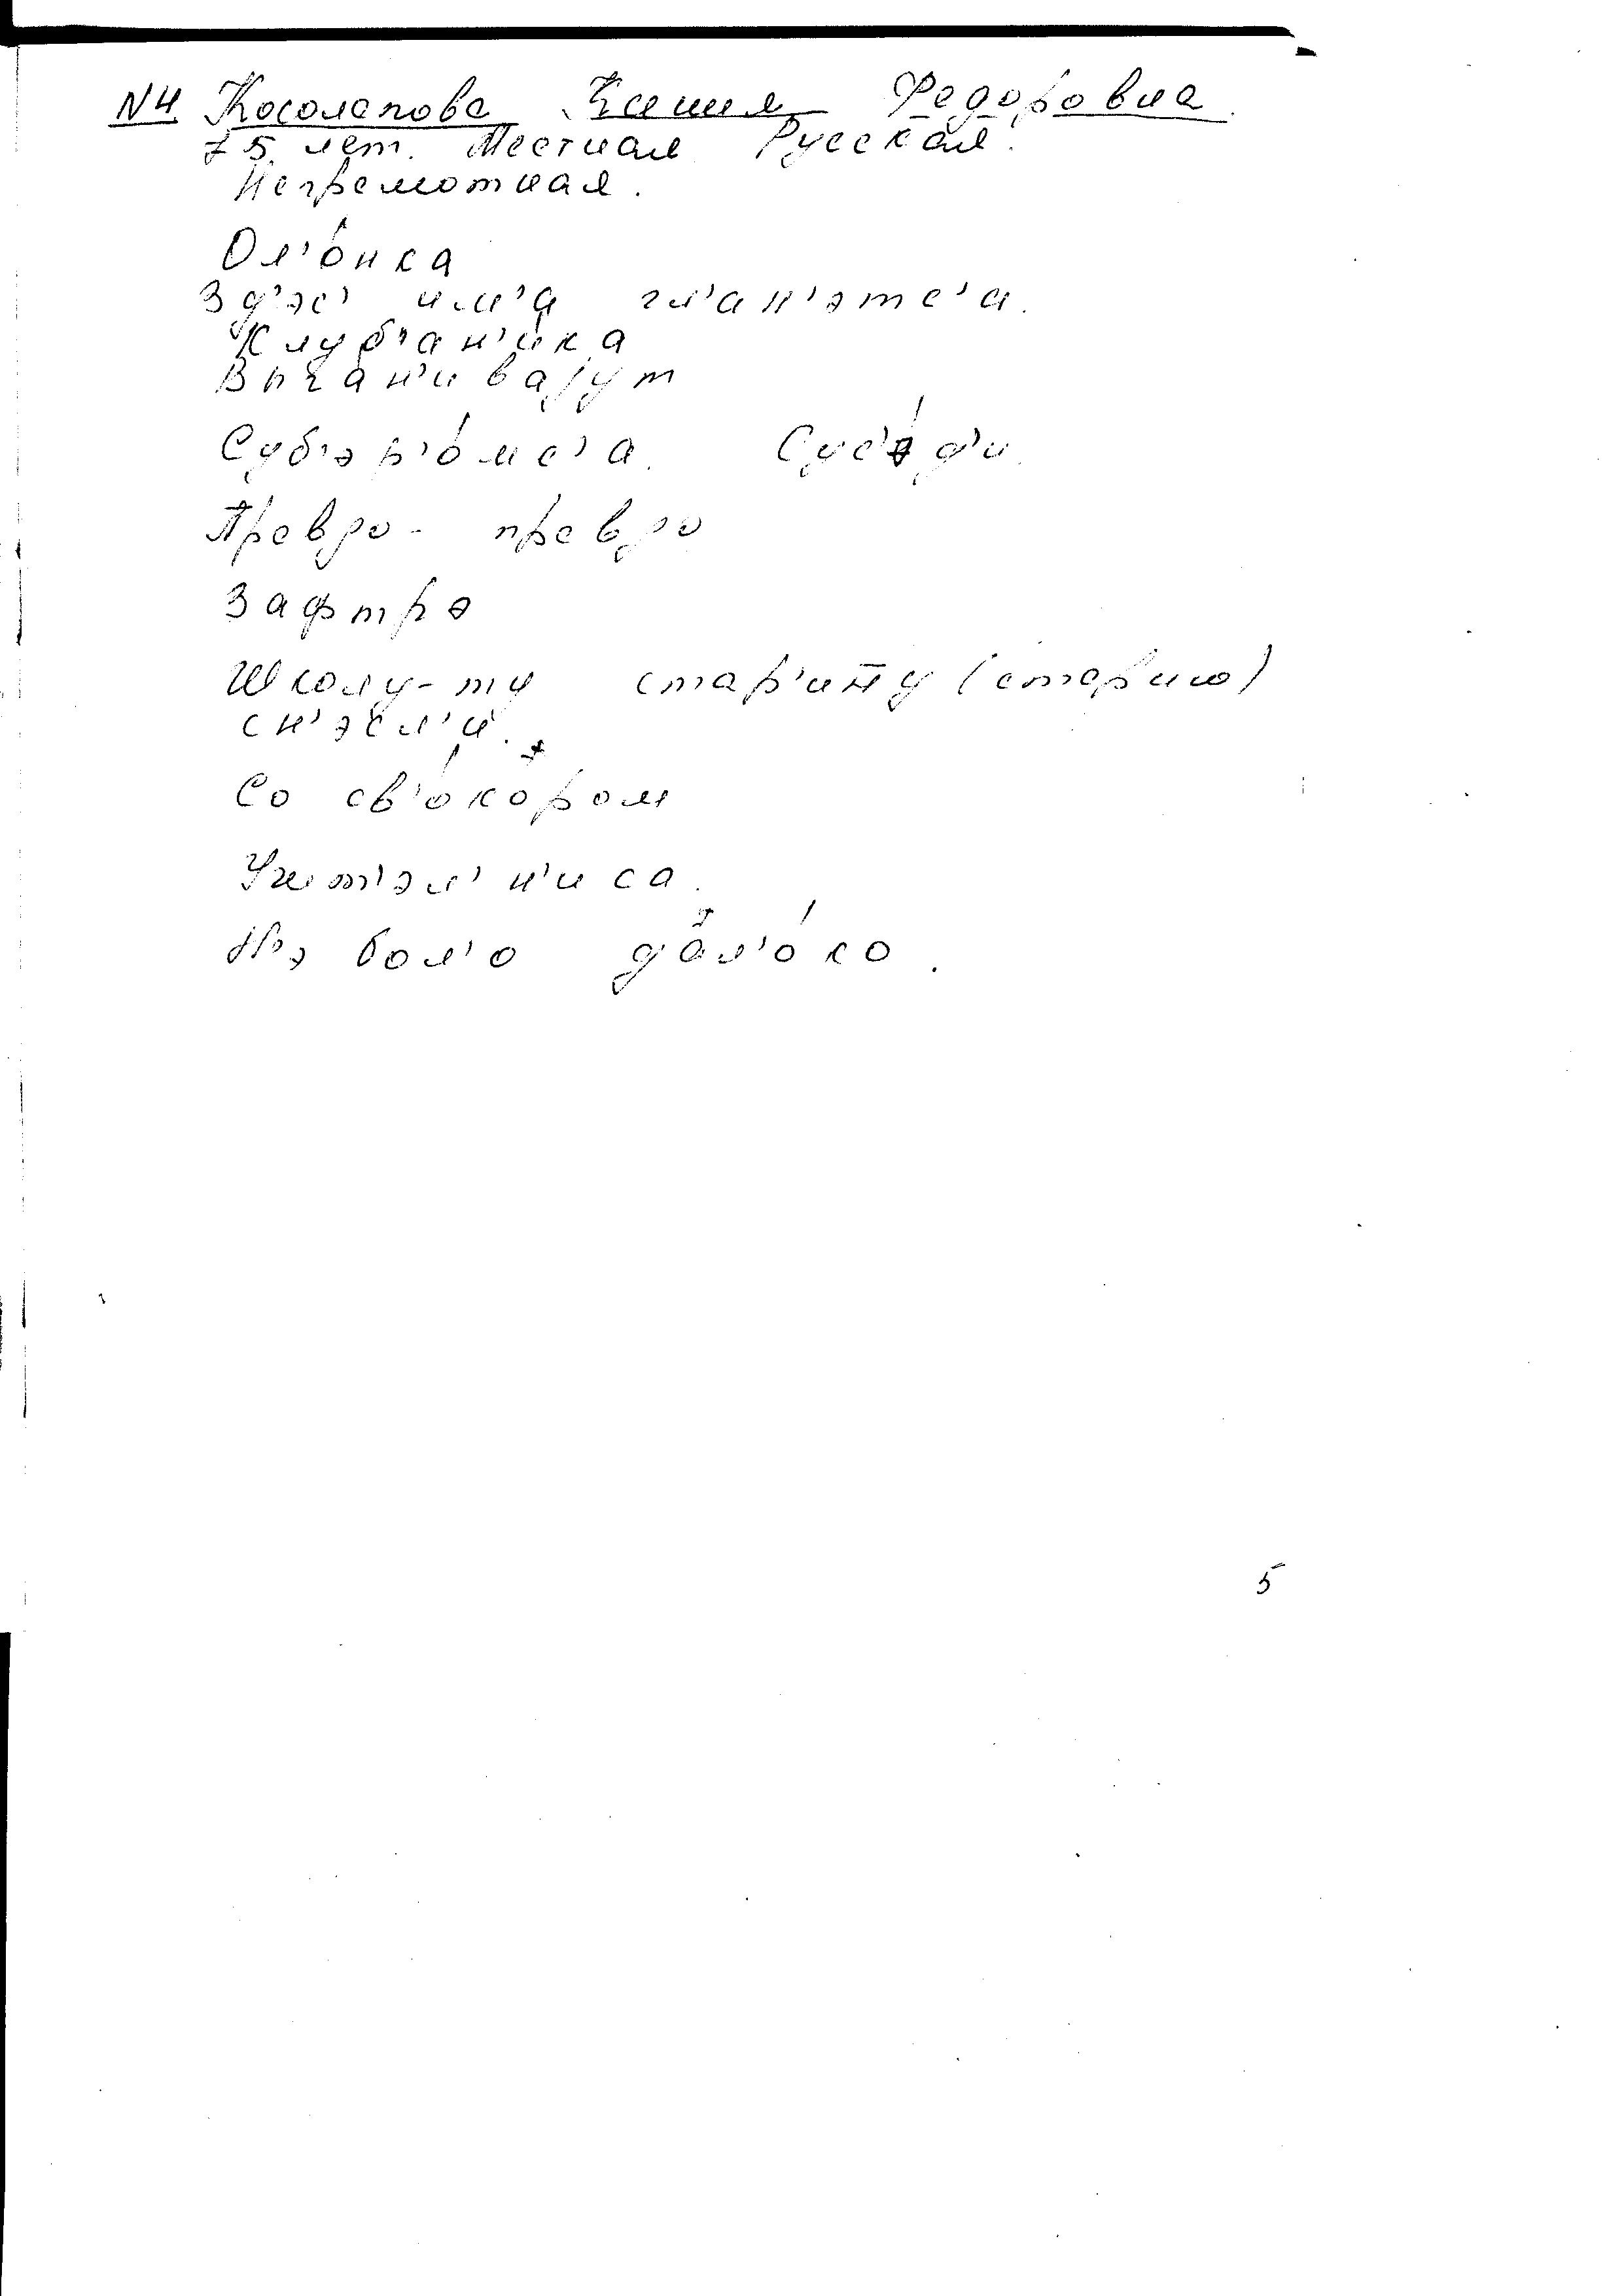 N4. Косолапова Ксения Федоровна.
75 лет. Местная Русская.
Неграмотная.
Ол'о́нка
Зд'эс' им'а гл'ан'этс'а.
Клубн'ан'ика
Выган'ивајут
Субэр'о́мс'а. Сус'э́д'и.
Правду - правду
Зафтрэ
Школу-ту стар'ину (старую)
сн'эсл'и.
Со св'о́кором
Учит'эл'н'иса.
Н'э бол'о дал'о́ко.
5